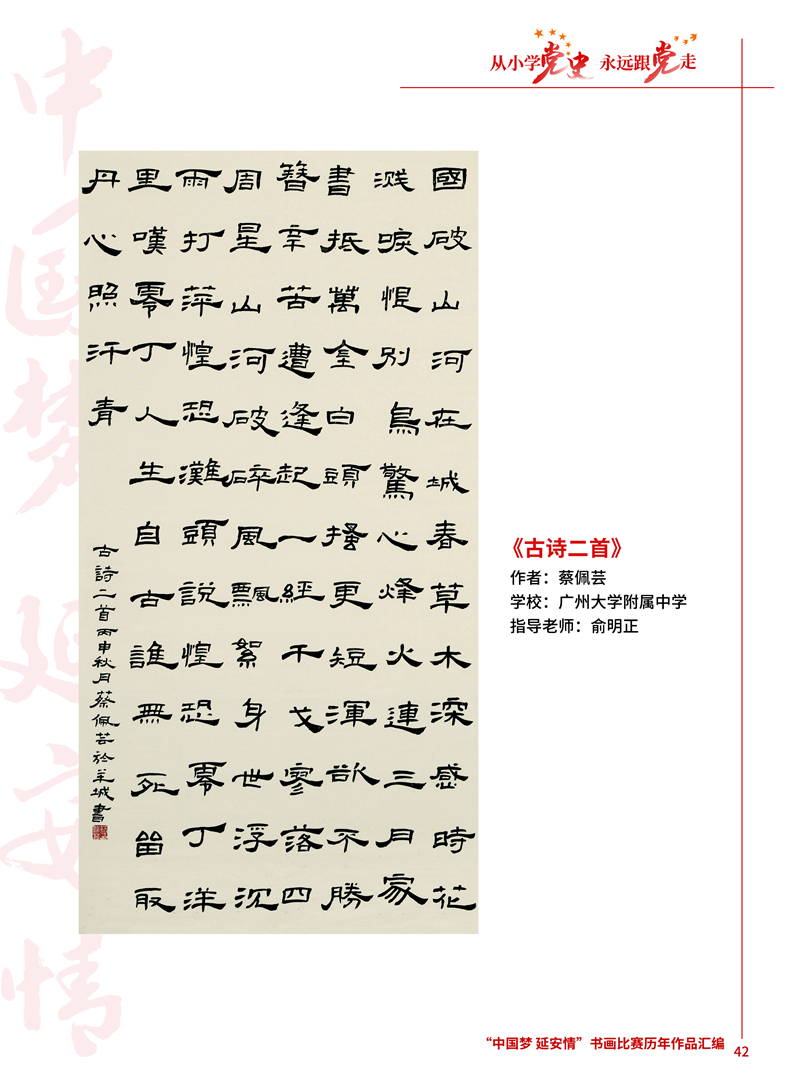 从小学党史 永远跟党走
中国梦 延安情
國破山河在城春草木深感時花
濺淚恨別鳥驚心烽火連三月家
書抵萬金白頭搔更短渾欲不勝
簪辛苦遭逢起一經干戈寥落四
周星山河破碎風飄絮身世浮沈
雨打萍惶恐灘頭說惶恐零丁洋
里嘆零丁人生自古誰無死留取
丹心照汗青
古詩二首丙申秋月蔡佩芸於羊城書
《古诗二首》
作者：蔡佩芸
学校：广州大学附属中学
指导老师：俞明正
“中国梦 延安情”书画比赛历年作品汇编
42